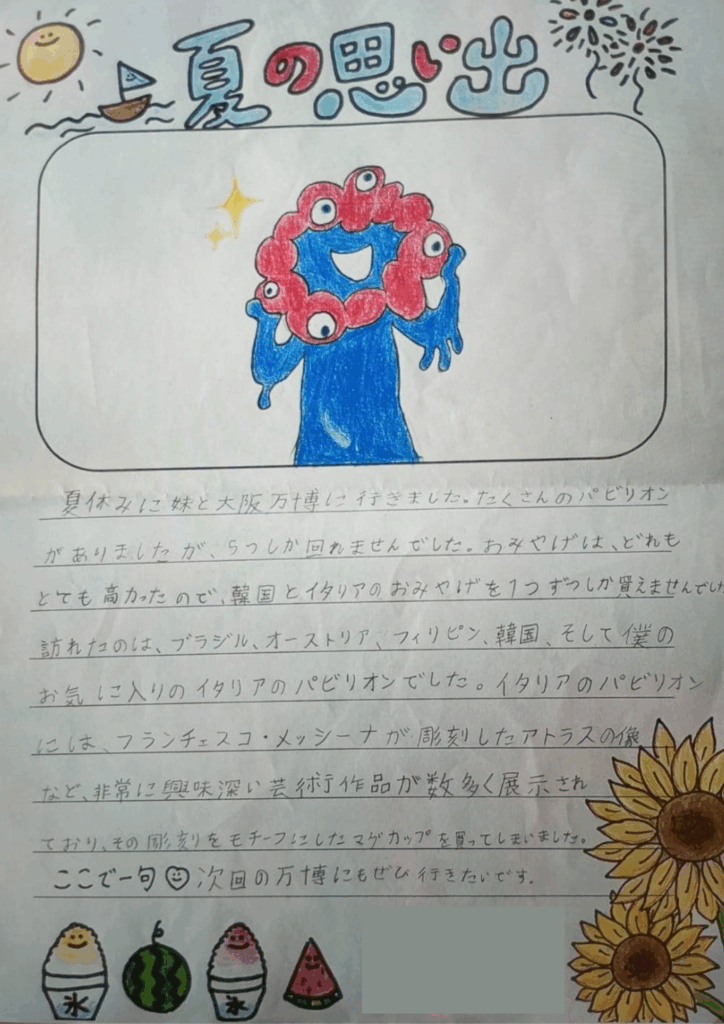 夏の思い出
夏休みに妹と大阪万博に行きました。たくさんのパビリオン
がありましたが、5つしか回れませんでした。おみやげは、どれも
とても高かったので、韓国とイタリアのおみやげを1つずつしか買えませんでし
訪れたのは、ブラジル、オーストリア、フィリピン、韓国、そして僕の
お気に入りのイタリアのパビリオンでした。イタリアのパビリオン
には、フランチェスコ・メッシーナが彫刻したアトラスの像
など、非常に興味深い芸術作品が数多く展示され
ており、その彫刻をモチーフにしたマグカップを買ってしまいました。
ここで一句 次回の万博にもぜひ行きたいです.
氷 氷